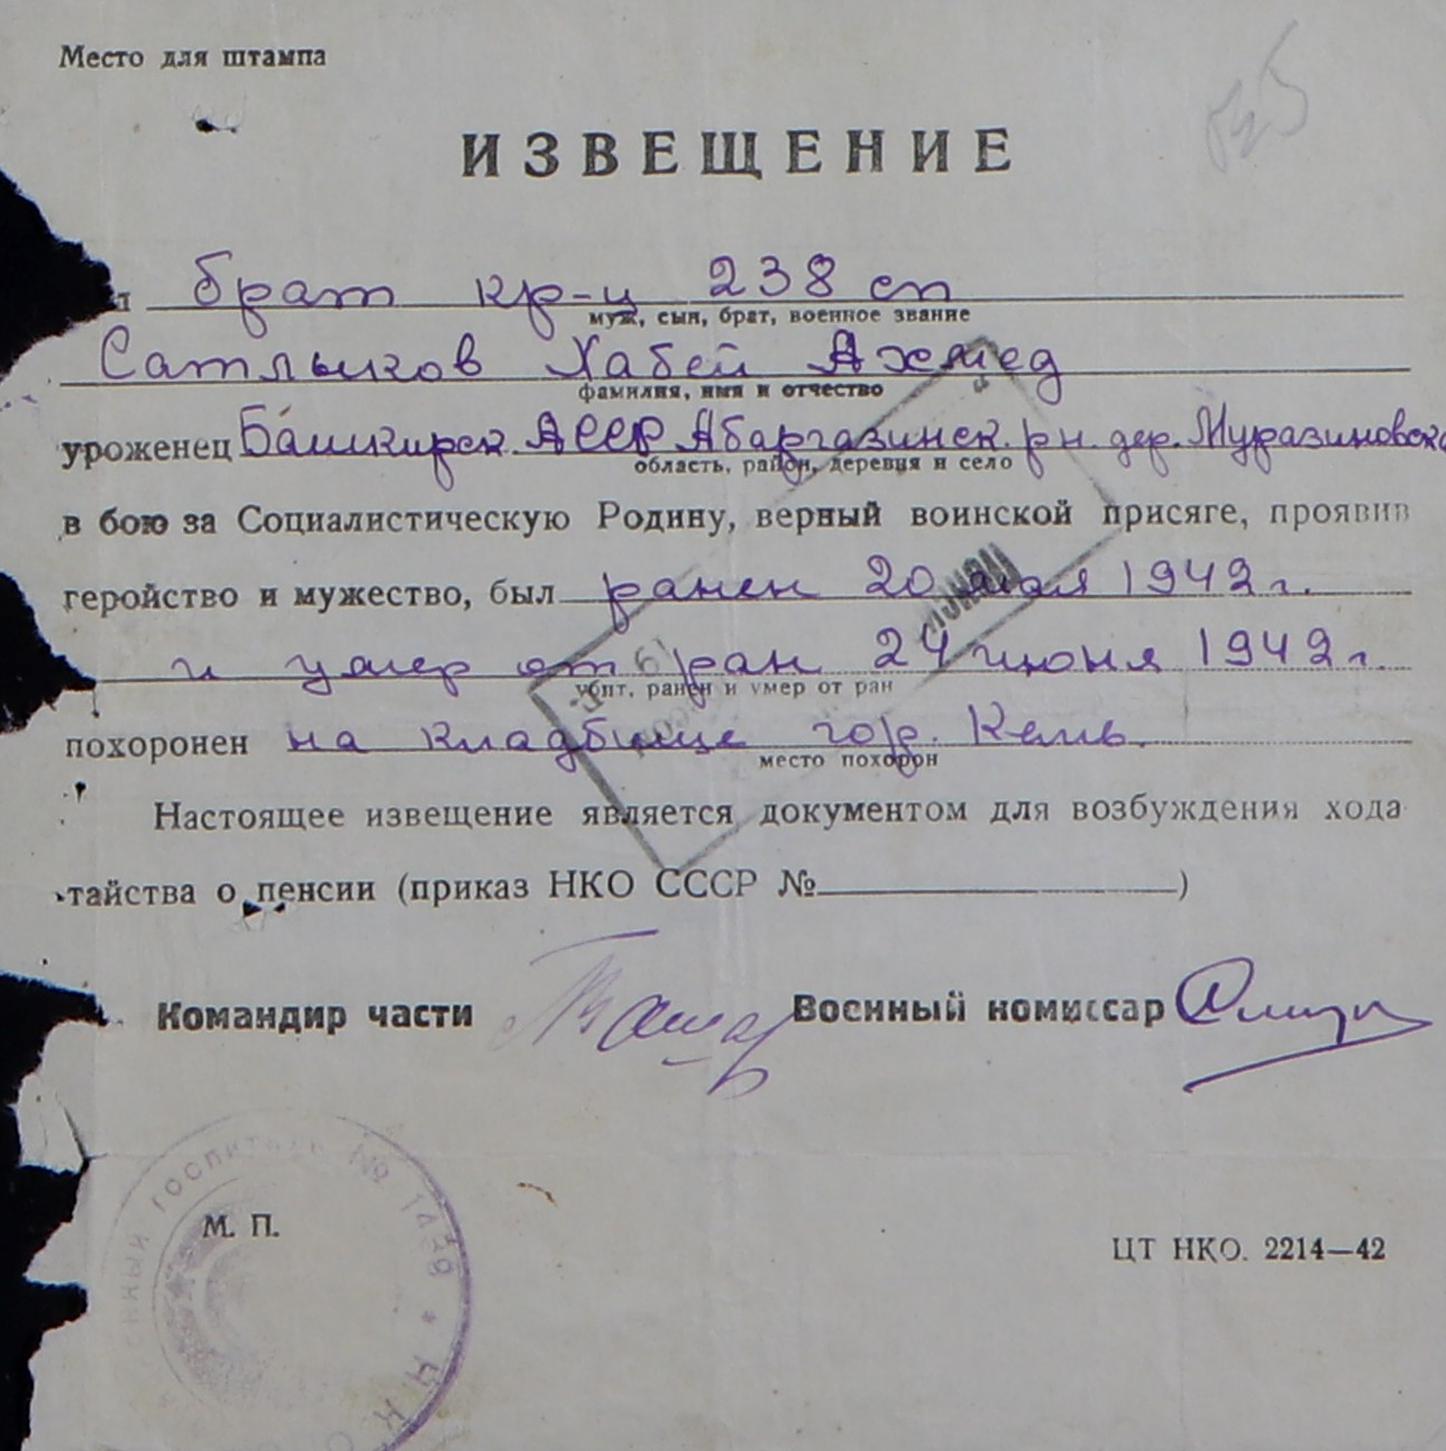 Место для штампа
ИЗВЕЩЕНИЕ
брат кр-ц 238 сп
муж, сын, брат, военное звание
Сатлыков Хабей Ахмед
фамилия, имя и отчество
уроженец Башкирск. АССР Абаргазинск. рн. дер. Муразиновско
область, район, деревня и село
в бою за Социалистическую Родину, верный воинской присяге, проявив
геройство и мужество, был ранен 20 мая 1942 г.
и умер от ран 24 июня 1942 г.
убит, ранен и умер от ран
похоронен на кладбище гор. Кемь.
место похорон
Настоящее извещение является документом для возбуждения хода
тайства о пенсии (приказ НКО СССР №)
Командир части Военный комиссар
госпиталь № 1439 * НКО
М. П.
ЦТ НКО. 2214—42